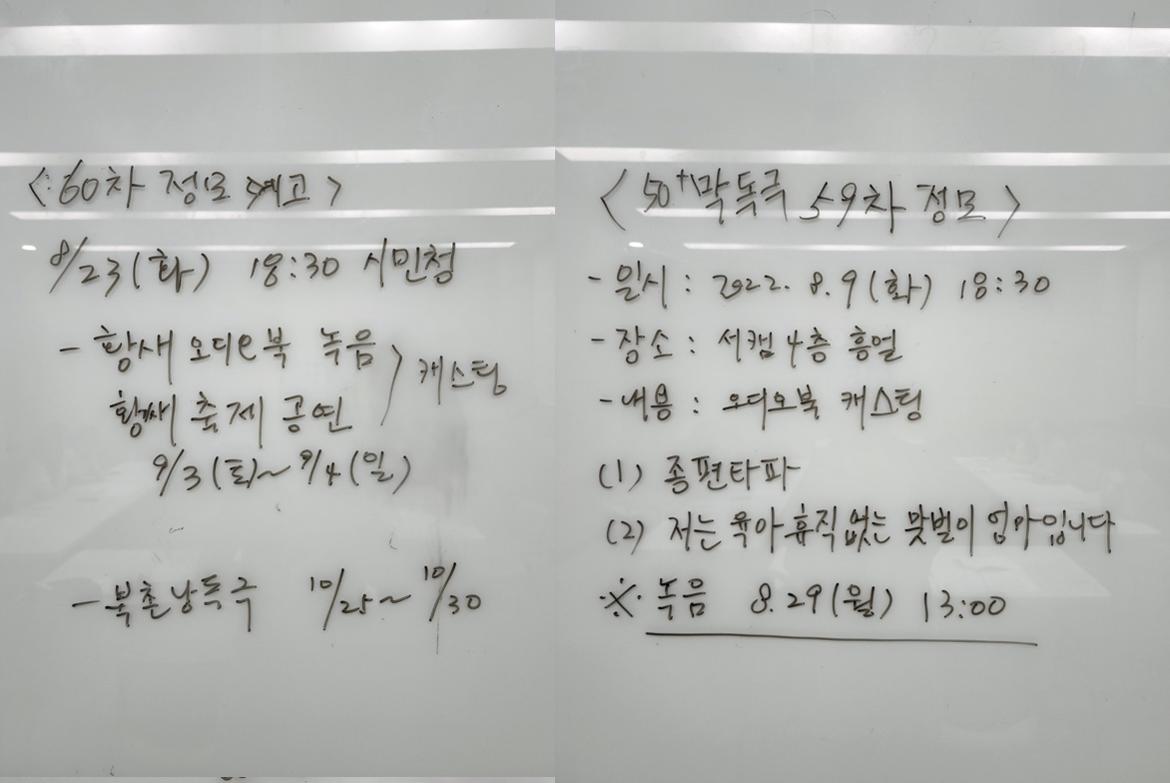 <60차 정모 예고>
8/23(화) 18:30 시민청
- 황새 오디오북 녹음
황새 축제 공연 > 캐스팅
9/3(토)~9/4(일)
- 북촌낭독극 10/25~10/30
<50+막독극 59차 정모>
- 일시 : 2022. 8. 9(화) 18:30
- 장소 : 서캠 4층 흥얼
- 내용 : 오디오북 캐스팅
(1) 종편타파
(2) 저는 육아휴직없는 맞벌이 엄마입니다
※ 녹음 8.29(월) 13:00